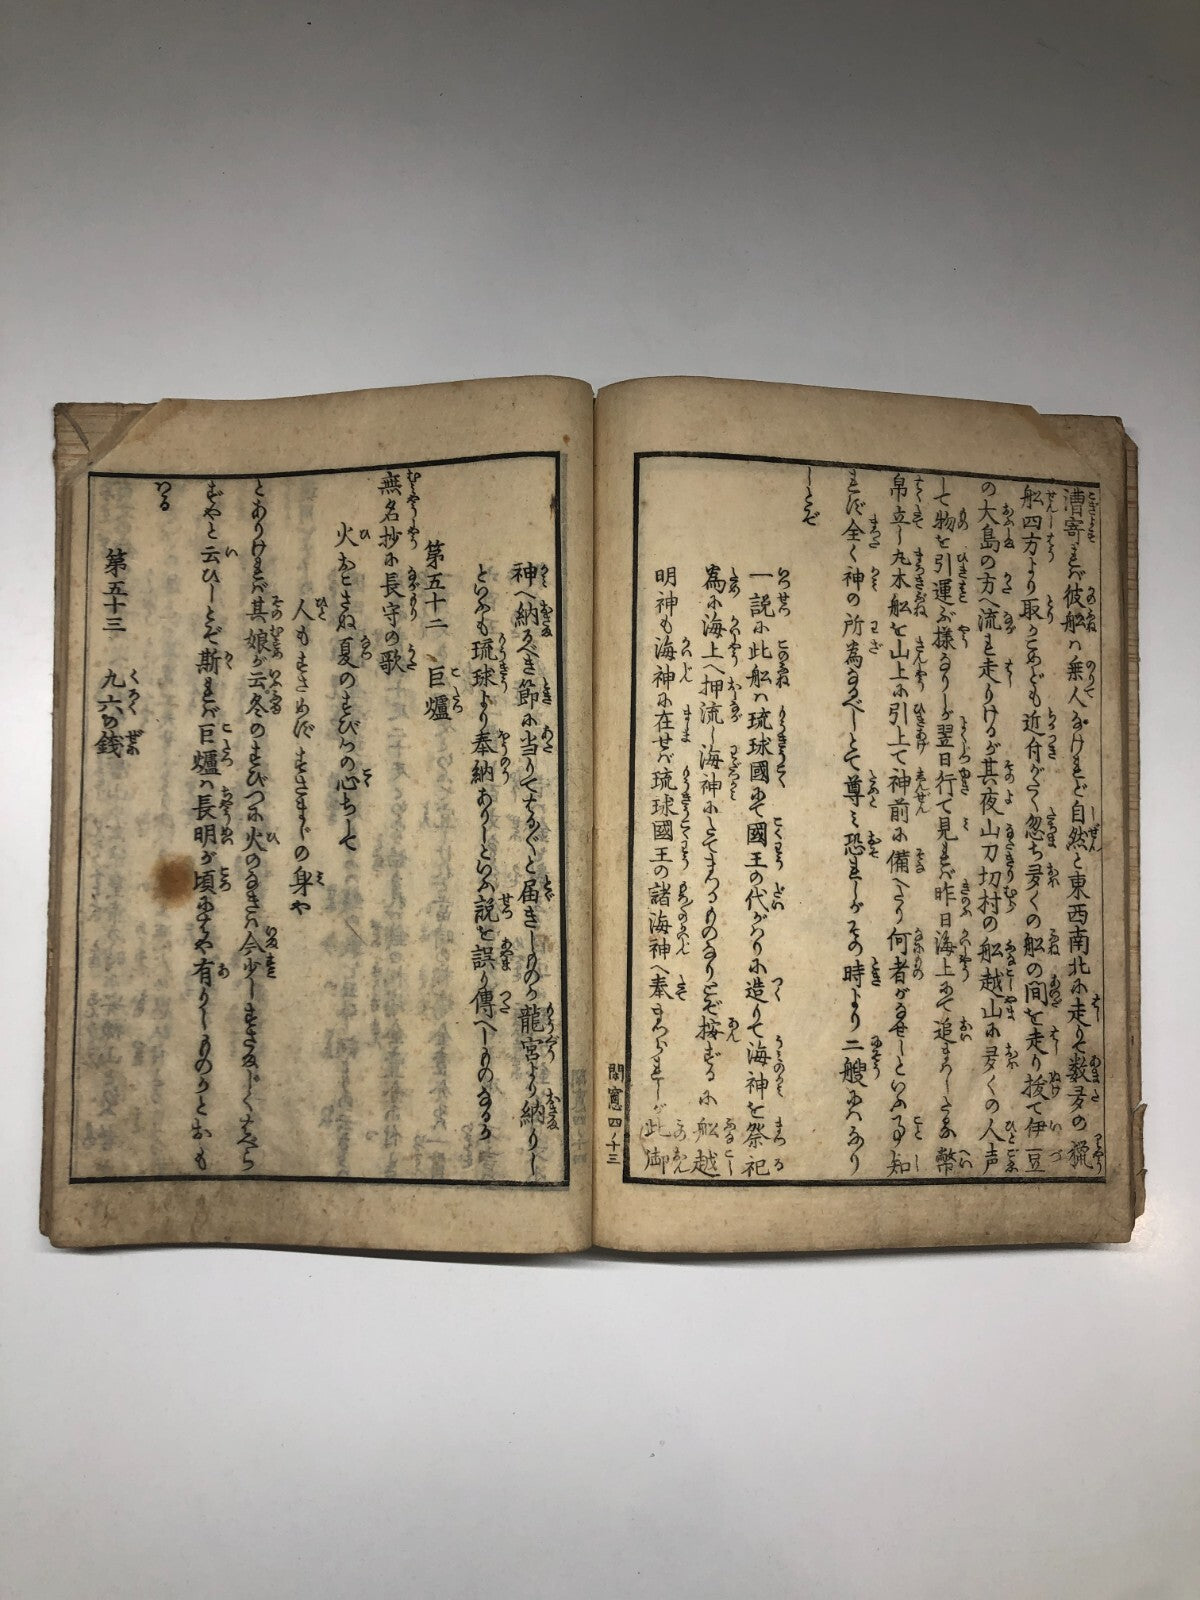 漕寄れば彼船ハ乗人なけれど自然と東西南北に走りて数多の猟
船四方より取かこめども近付がたく忽ち多くの船の間を走り抜て伊豆
の大島の方へ流れ走りけるが其夜山刀切村の船越山に多くの人声
して物を引運ぶ様なりしが翌日行て見れば昨日海上にて追まハしたる幣
帛立し丸木船を山上に引上て神前に備へたり何者がなせしといふ事知
れず全く神の所為なるべしとて尊ミ恐れしがその時より二艘にハなり
しとぞ
一説に此船ハ琉球國にて國王の代がハりに造りて海神を祭祀
為に海上へ押流し海神にたてまつるものなりとぞ按ずるに船越
明神も海神に在せバ琉球國王の諸海神へ奉まつられしが此御
閑窓四ノ十三
神へ納るべき節に当りてたゞと届きしものか龍宮より納りし
といふも琉球より奉納ありしといふ説を誤り傳へしものなるか
第五十二 巨爐
無名抄に長守の歌
火おこさぬ夏のすびつの心ちして
人もすさめずすさまじの身や
とありければ其娘が云冬のすびつに火のなきハ今少しすさまじくはべら
ずやと云ひしとぞ斯れば巨爐ハ長明が頃にはや有りしものかとおも
はる
第五十三 九六の銭